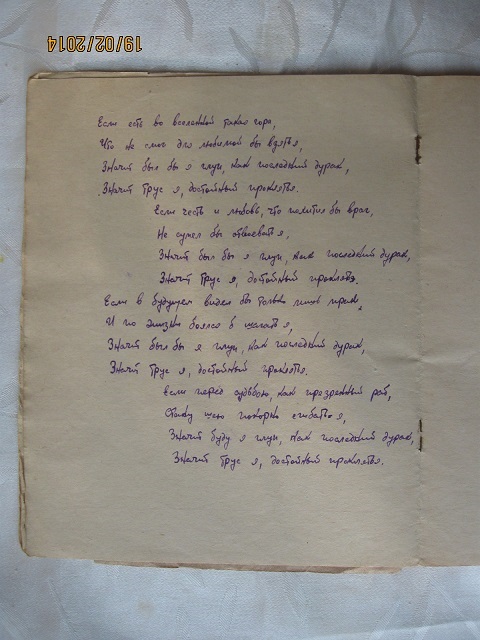 19/02/2014
Если есть во вселенной такая гора,
Что не смог для любимой бы взять я,
Значит был бы я глуп, как последний дурак,
Значит трус я, достойный проклятья.
Если честь и любовь, что похитил бы враг,
Не сумел бы отвоевать я,
Значит был бы я глуп, как последний дурак,
Значит трус я, достойный проклятья.
Если в будущем видел бы только лишь мрак,
И по жизни боялся б шагать я,
Значит был бы я глуп, как последний дурак,
Значит трус я, достойный проклятья.
Если перед судьбою, как презренный раб,
Стану шею покорно сгибать я,
Значит буду я глуп, как последний дурак,
Значит трус я, достойный проклятья.